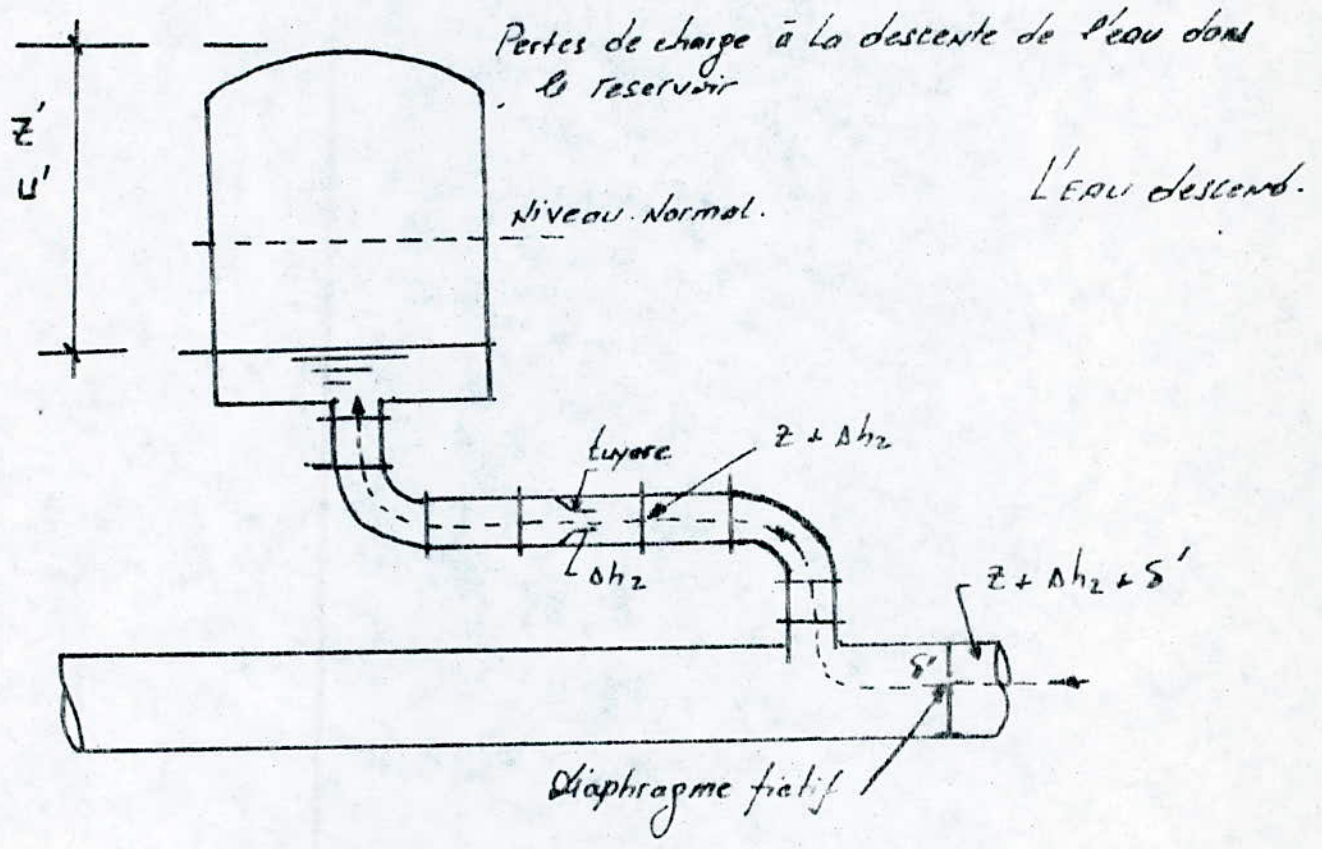 Pertes de charge à la descente de l'eau dans
le reservoir
Z'
U'
L'EAU descend.
Niveau Normal.
tuyere
Z + Δh₂
Δh₂
Z + Δh₂ + δ'
δ'
Diaphragme fictif